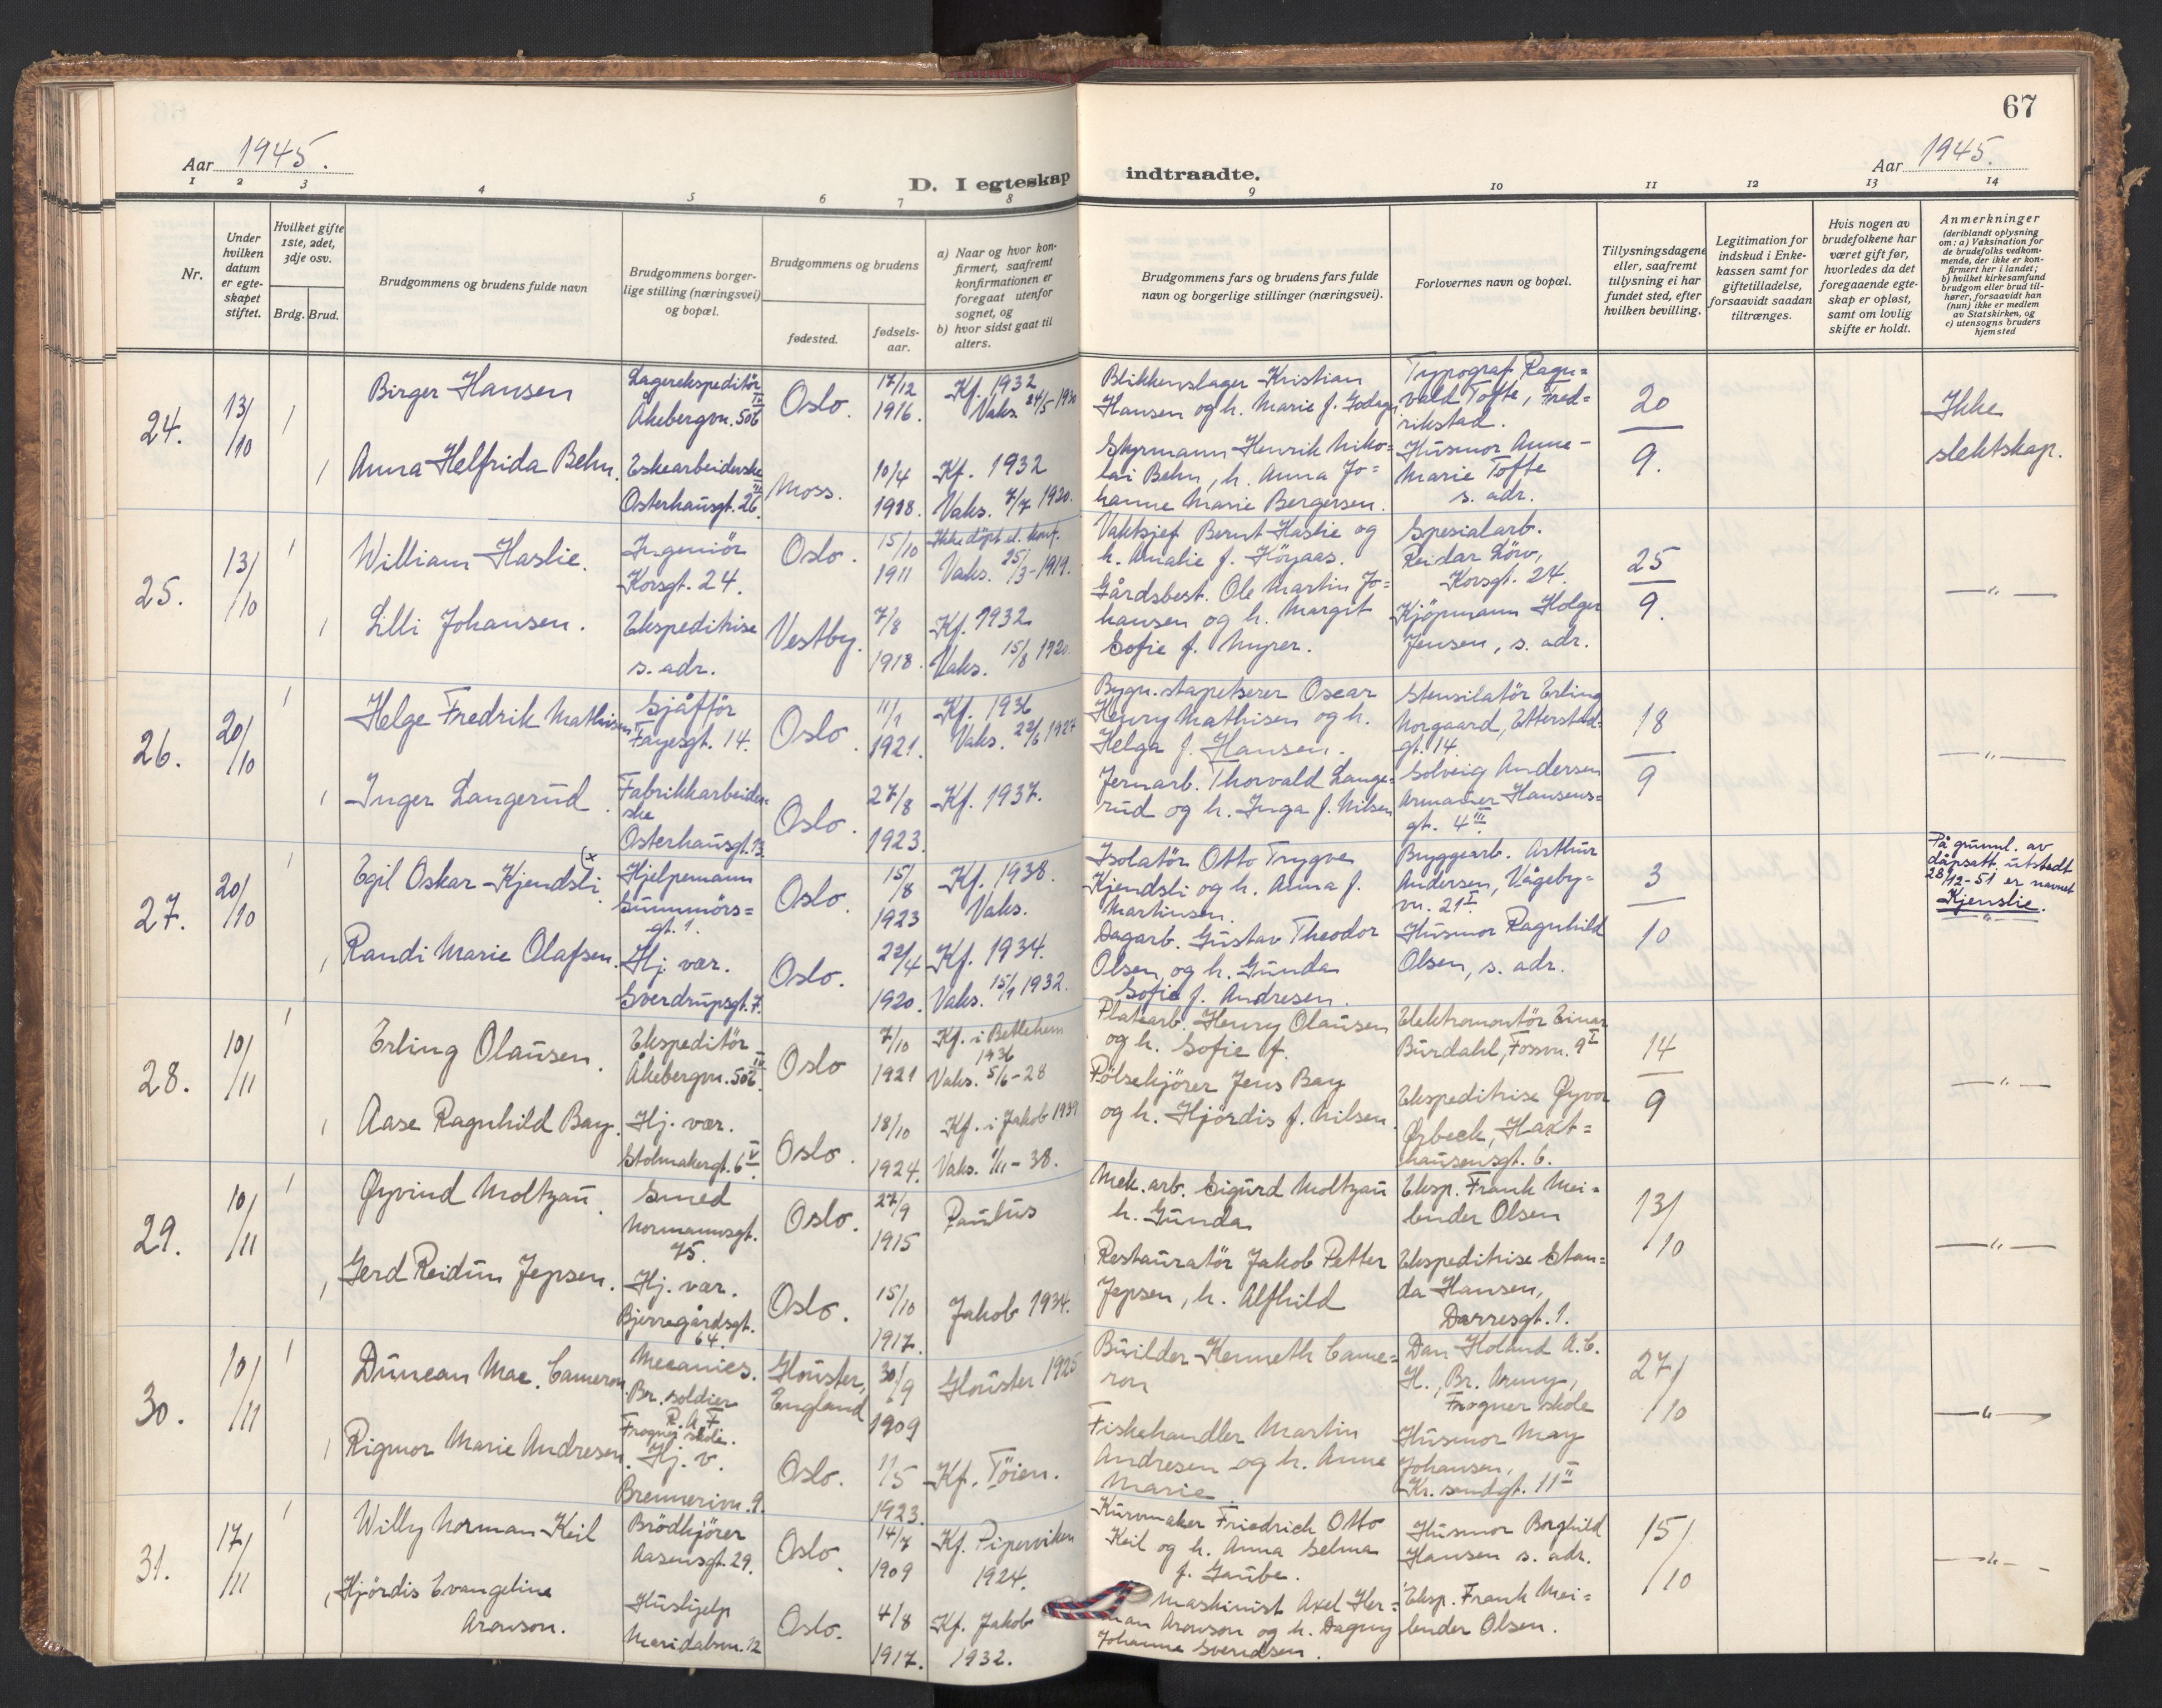 67
Aar 1945.
D. I egteskap indtraadte.
Aar 1945.
1 2 3 4 5 6 7 8 9 10 11 12 13 14
Nr.
Under
hvilken
datum
er egte-
skapet
stiftet.
Hvilket gifte
1ste, 2det,
3dje osv.
Brdg. Brud.
Brudgommens og brudens fulde navn
Brudgommens borger-
lige stilling (næringsvei)
og bopæl.
Brudgommens og brudens
fødested.
fødsels-
aar.
a) Naar og hvor kon-
firmert, saafremt
konfirmationen er
foregaat utenfor
sognet, og
b) hvor sidst gaat til
alters.
Brudgommens fars og brudens fars fulde
navn og borgerlige stillinger (næringsvei).
Forlovernes navn og bopæl.
Tillysningsdagene
eller, saafremt
tillysning ei har
fundet sted, efter
hvilken bevilling.
Legitimation for
indskud i Enke-
kassen samt for
giftetilladelse,
forsaavidt saadan
tiltrænges.
Hvis nogen av
brudefolkene har
været gift før,
hvorledes da det
foregaaende egte-
skap er opløst,
samt om lovlig
skifte er holdt.
Anmerkninger
(deriblandt oplysning
om: a) Vaksination for
de brudefolks vedkom-
mende, der ikke er kon-
firmert her i landet;
b) hvilket kirkesamfund
brudgom eller brud til-
hører, forsaavidt han
(hun) ikke er medlem
av Statskirken, og
c) utensogns bruders
hjemsted
24.
13/
/10
1
Birger Hansen
Lagerekspeditör
Åkebergvn. 50b IV
Oslo.
17/12
1916.
Kf. 1932
Vaks. 24/5 1930
Blikkenslager Kristian
Hansen og h. Marie f.
Typograf Ragn=
vald Tofte, Fred=
rikstad.
20
9.
Ikke
slektskap.
1
Anna Helfrida Behn.
Eskearbeiderske
Osterhausgt. 26 III
Moss.
10/4
1918.
Kf. 1932
Vaks. 7/7 1920.
Styrmann Henrik Niko=
lai Behn, h. Anna Jo=
hanne Marie Bergersen.
Husmor Anne-
Marie Tofte
s. adr.
25.
13/
/10
1
William Haslie.
Ingeniör
Korsgt. 24.
Oslo.
15/10
1911
Ikke döpt el. konf.
Vaks. 25/3-1919.
Vaktsjef Bernt Haslie og
h. Amalie f. Höyaas.
Spesialarb.
Reidar Löw,
Korsgt. 24.
25
9.
— " —
1
Lilli Johansen.
Ekspeditrise
s. adr.
Vestby.
7/8
1918.
Kf. 1932
Vaks. 15/8 1920.
Gårdsbest. Ole Martin Jo=
hansen og h. Margit
Sofie f. Myrer.
Kjöpmann Holger
Jensen, s. adr.
26.
20/
/10
1
Helge Fredrik Mathisen
Sjåfför
Fayesgt. 14.
Oslo.
11/1
1921.
Kf. 1936
Vaks. 22/6 1927
Bygn. stapetserer Oscar
Henry Mathisen og h.
Helga f. Hansen.
Stensilatör Erling
Norgaard, Etterstad-
gt. 14.
18
9
— " —
1
Inger Langerud.
Fabrikkarbeider=
ske
Osterhausgt. 13.
Oslo.
27/8
1923.
Kf. 1937.
Jernarb. Thorvald Lange=
rud og h. Inga f. Nilsen
Solveig Andersen
Armauer Hansens=
gt. 4 III.
27.
20/
/10
1
Egil Oskar Kjendsli. (x
Hjelpemann
Sunnmörs=
gt. 1.
Oslo.
15/8
1923
Kf. 1938.
Vaks.
Isolatör Otto Trygve
Kjendsli og h. Anna f.
Martinsen.
Byggearb. Arthur
Andersen, Vågeby=
vn. 21 I.
3
10
På grunnl. av
dåpsatt. utstedt
28/12-51 er navnet
Kjenslie.
"
1
Randi Marie Olafsen.
Hj. vær.
Sverdrupsgt. 7.
Oslo.
22/4
1920.
Kf. 1934.
Vaks. 15/9 1932.
Dagarb. Gustav Theodor
Olsen, og h. Gunda
Sofie f. Andresen.
Husmor Ragnhild
Olsen, s. adr.
28.
10/
/11
1
Erling Olausen.
Ekspeditör
Åkebergvn. 50b IV.
Oslo
7/10
1921
Kf. i Betlehem
1936
Vaks. 5/6-28
Platearb. Henry Olausen
og h. Sofie f.
Elektromontör Einar
Burdahl, Fossvn. 9 I
14
9
— " —
1
Aase Ragnhild Bay.
Hj. vær.
Stolmakergt. 6 V.
Oslo.
18/10
1924.
Kf. i Jakob 1939
Vaks. 1/11-38.
Pölsekjörer Jens Bay
og h. Hjördis f. Nilsen.
Ekspeditrise Øyvor
Ørbeck, Haxt=
hausensgt. 6.
29.
10/
/11
1
Øyvind Moltzau.
Smed
Normannsgt.
45.
Oslo.
27/9
1915
Paulus
Mek. arb. Sigurd Moltzau
h. Gunda
Eksp. Frank Mei=
lender Olsen
13/
/10
— " —
1
Gerd Reidun Jepsen.
Hj. vær.
Bjerregårdsgt.
64.
Oslo.
15/10
1917.
Jakob 1934.
Restauratör Jakob Petter
Jepsen, h. Alfhild
Ekspeditrise Stan=
da Hansen,
Darresgt. 1.
30.
10/
/11
1
Duncan Mac. Cameron.
Mecanics.
Br. soldier
R.A.F
Frogner skole.
Glouster,
England
30/9
1909
Glouster 1925
Builder Kenneth Came=
ron
Dan Holand A.C.
H., Br. Army,
Frogner skole
27/
/10
— " —
1
Rigmor Marie Andresen.
Hj. v.
Brennerivn. 9.
Oslo.
1/5
1923.
Kf. Töien.
Fiskehandler Martin
Andresen og h. Anne
Marie
Husmor May
Johansen,
Kr. sandgt. 11 II
31.
17/
/11
1
Willy Norman Keil
Brödkjörer
Aasensgt. 29.
Oslo.
14/7
1909
Kf. Piperviken
1924.
Kurvmaker Friedrich Otto
Keil og h. Anna Selma
f. Gaube.
Husmor Borghild
Hansen s. adr.
15/
/10
— " —
1
Hjördis Evangeline
Aronson.
Hushjelp
Maridalsvn. 12
Oslo.
4/8
1917.
Kf. Jakob
1932.
Maskinist Axel Her=
man Aronson og h. Dagny
Johanne Svendsen.
Eksp. Frank Mei=
lender Olsen.